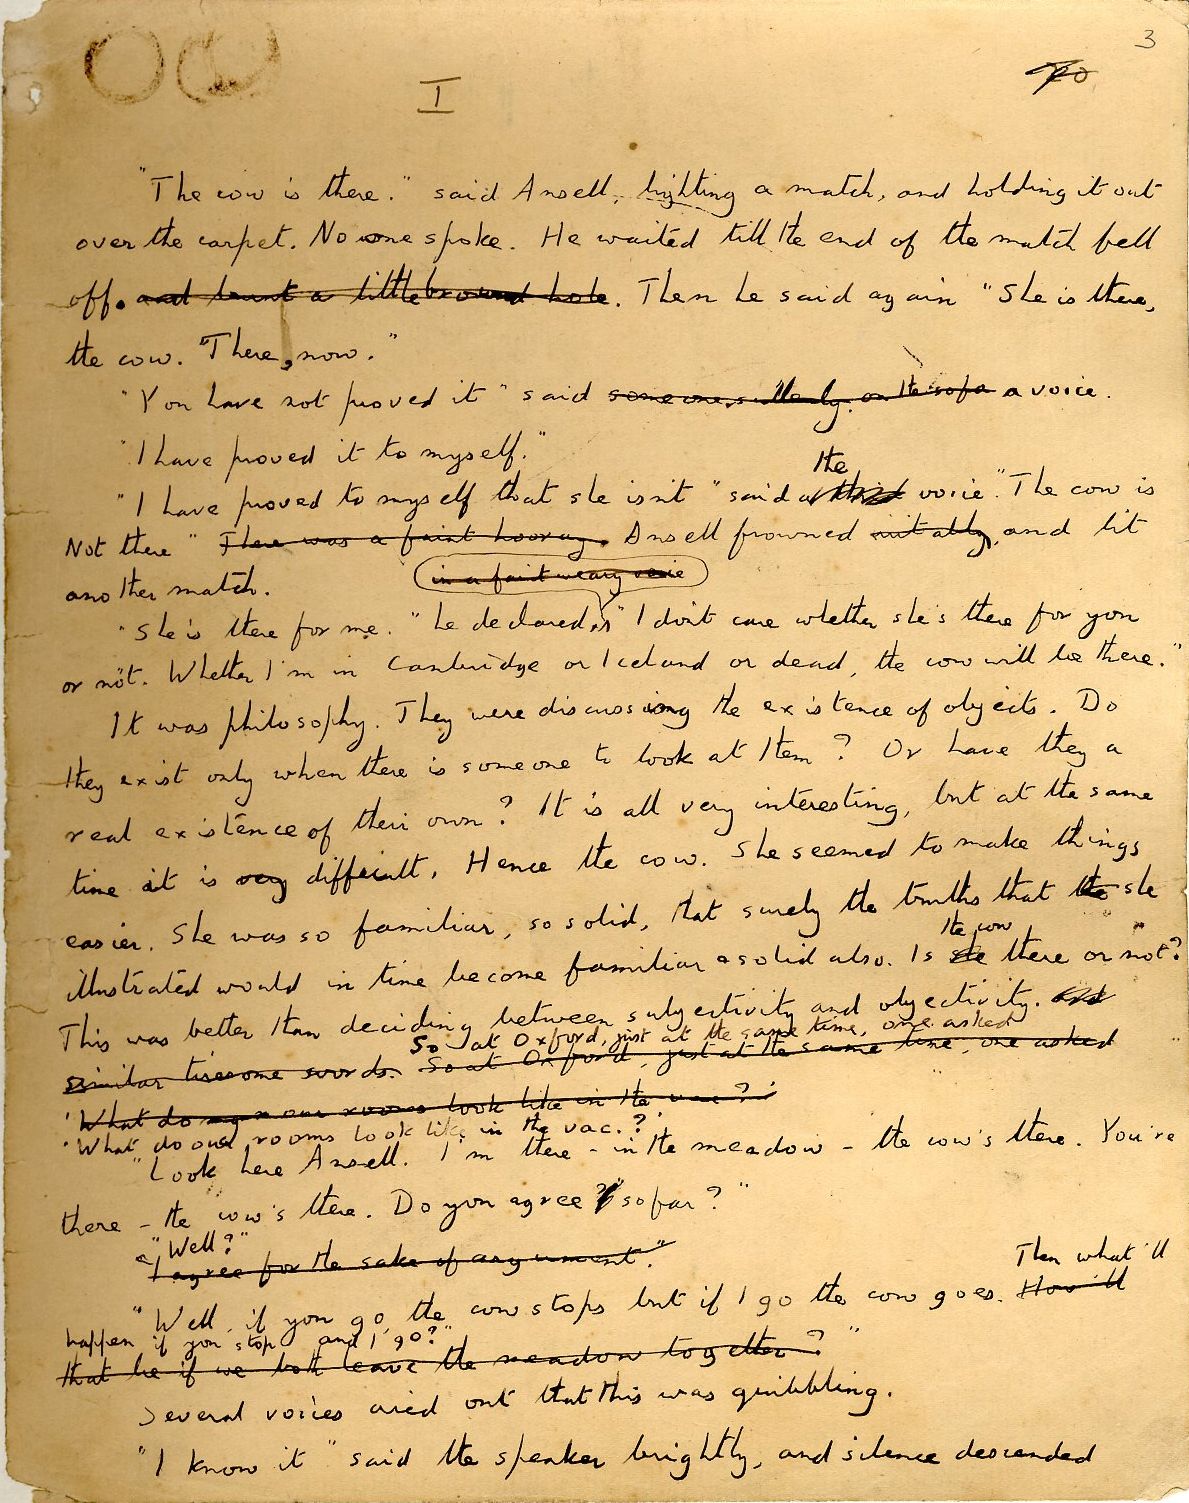 3
I
"The cow is there." said Ansell, lighting a match, and holding it out
over the carpet. No one spoke. He waited till the end of the match fell
off. and burnt a little round hole. Then he said again "She is there,
the cow. There, now."
"You have not proved it" said someone sullenly on the sofa a voice.
"I have proved it to myself."
the
"I have proved to myself that she isn't" said a third voice. "The cow is
Not there" There was a faint hooray. Ansell frowned irritably, and lit
in a faint weary voice
another match.
"She's there for me." he declared, "I don't care whether she's there for you
or not. Whether I'm in Cambridge or Iceland or dead, the cow will be there."
It was philosophy. They were discussing the existence of objects. Do
they exist only when there is someone to look at them? Or have they a
real existence of their own? It is all very interesting, but at the same
time it is very difficult. Hence the cow. She seemed to make things
easier. She was so familiar, so solid, that surely the truths that the she
the cow
illustrated would in time become familiar & solid also. Is she there or not?
This was better than deciding between subjectivity and objectivity. And
So at Oxford, just at the same time, one asked
similar tiresome words. So at Oxford, just at the same time, one asked
'What do my our rooms look like in the vac?'
'What do our rooms look like in the vac.?'
"Look here Ansell. I'm there - in the meadow - the cow's there. You're
there - the cow's there. Do you agree so far?"
"Well?"
"I agree for the sake of argument."
Then what'll
"Well, if you go, the cow stops but if I go the cow goes. How'll
happen if you stop and I go?"
that be if we both leave the meadow together?"
Several voices cried out that this was quibbling.
"I know it" said the speaker brightly, and silence descended